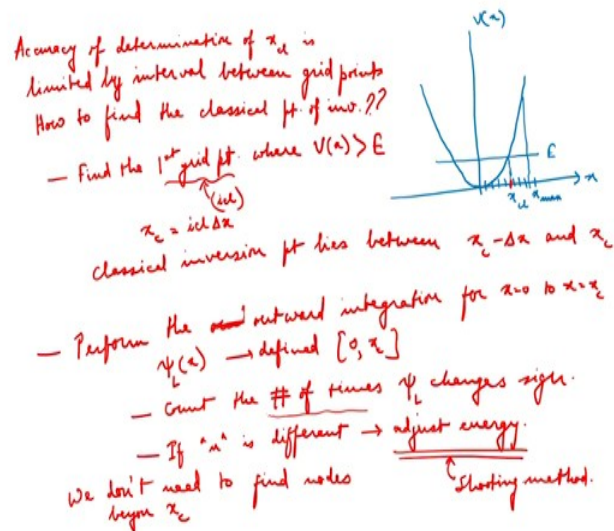 Accuracy of determination of x_cl is
limited by interval between grid points
How to find the classical pt. of inv.??
— Find the 1st grid pt. where V(x) > E
(icl)
x_c = icl Δx
classical inversion pt lies between x_c - Δx and x_c
— Perform the outward integration for x=0 to x=x_c
ψ_L(x) → defined [0, x_c]
— Count the # of times ψ_L changes sign.
— If "n" is different → adjust energy.
Shooting method.
We don't need to find nodes
beyon x_c
V(x)
E
x
x_cl x_max